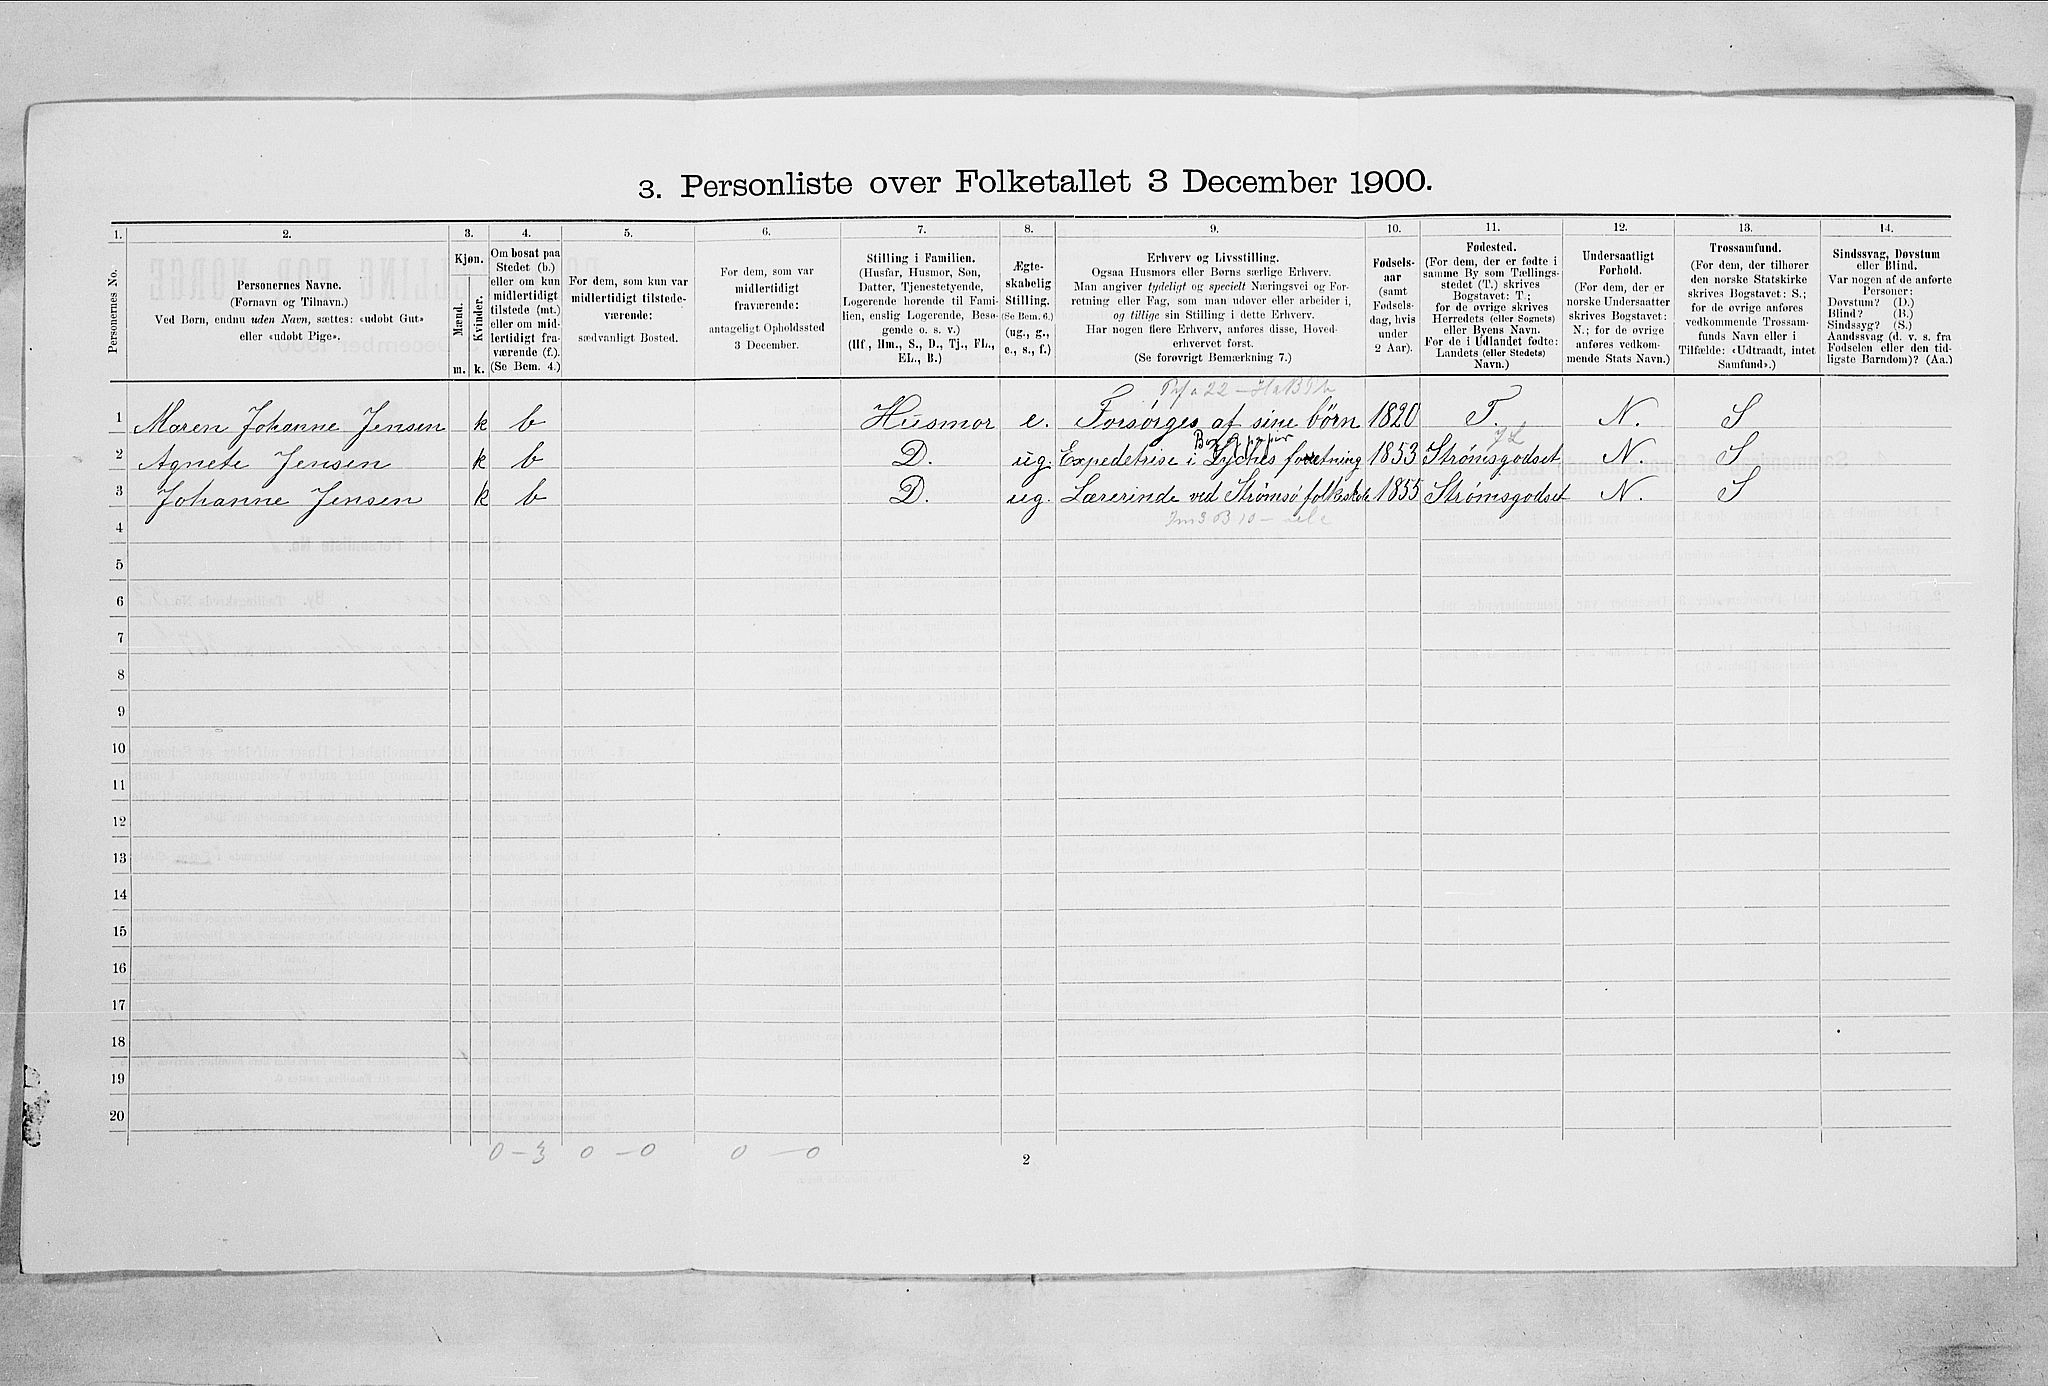 3. Personliste over Folketallet 3 December 1900.
1. 2. 3. 4. 5. 6. 7. 8. 9. 10. 11. 12. 13. 14.
Personernes No.
Personernes Navne.
(Fornavn og Tilnavn.)
Ved Børn, endnu uden Navn, sættes: «udøbt Gut»
eller «udøbt Pige».
Kjøn.
Mænd.
Kvinder.
m. k.
Om bosat paa
Stedet (b.)
eller om kun
midlertidigt
tilstede (mt.)
eller om mid-
lertidigt fra-
værende (f.).
(Se Bem. 4.)
For dem, som kun var
midlertidigt tilstede-
værende:
sædvanligt Bosted.
For dem, som var
midlertidigt
fraværende:
antageligt Opholdssted
3 December.
Stilling i Familien.
(Husfar, Husmor, Søn,
Datter, Tjenestetyende,
Logerende hørende til Fami-
lien, enslig Logerende, Besø-
gende o. s. v.)
(Hf., Hm., S., D., Tj., FL.,
EL., B.)
Ægte-
skabelig
Stilling.
(Se Bem. 6.)
(ug., g.,
e., s., f.)
Erhverv og Livsstilling.
Ogsaa Husmors eller Børns særlige Erhverv.
Man angiver tydeligt og specielt Næringsvei og For-
retning eller Fag, som man udøver eller arbeider i,
og tillige sin Stilling i dette Erhverv.
Har nogen flere Erhverv, anføres disse, Hoved-
erhvervet først.
(Se forøvrigt Bemærkning 7.)
Fødsels-
aar
(samt
Fødsels-
dag, hvis
under
2 Aar).
Fødested.
(For dem, der er fødte i
samme By som Tællings-
stedet (T.) skrives
Bogstavet: T.;
for de øvrige skrives
Herredets (eller Sognets)
eller Byens Navn.
For de i Udlandet fødte:
Landets (eller Stedets)
Navn.)
Undersaatligt
Forhold.
(For dem, der er
norske Undersaatter
skrives Bogstavet:
N.; for de øvrige
anføres vedkom-
mende Stats Navn.)
Trossamfund.
(For dem, der tilhører
den norske Statskirke
skrives Bogstavet: S.;
for de øvrige anføres
vedkommende Trossam-
funds Navn eller i
Tilfælde: «Udtraadt, intet
Samfund».)
Sindssvag, Døvstum
eller Blind.
Var nogen af de anførte
Personer:
Døvstum? (D.)
Blind? (B.)
Sindssyg? (S.)
Aandssvag (d. v. s. fra
Fødselen eller den tid-
ligste Barndom)? (Aa.)
1 Maren Johanne Jensen k b Husmor e. Forsørges af sine børn 1820 T. N. S
2 Agnete Jensen k b D. ug. Expedetrise i Lyches foretning 1853 Strømsgodset N. S
3 Johanne Jensen k b D. ug. Lærerinde ved Strømsø folkeskole 1855 Strømsgodset N. S
4
5
6
7
8
9
10
11
12
13
14
15
16
17
18
19
20
0 – 3 0 – 0 0 – 0
2